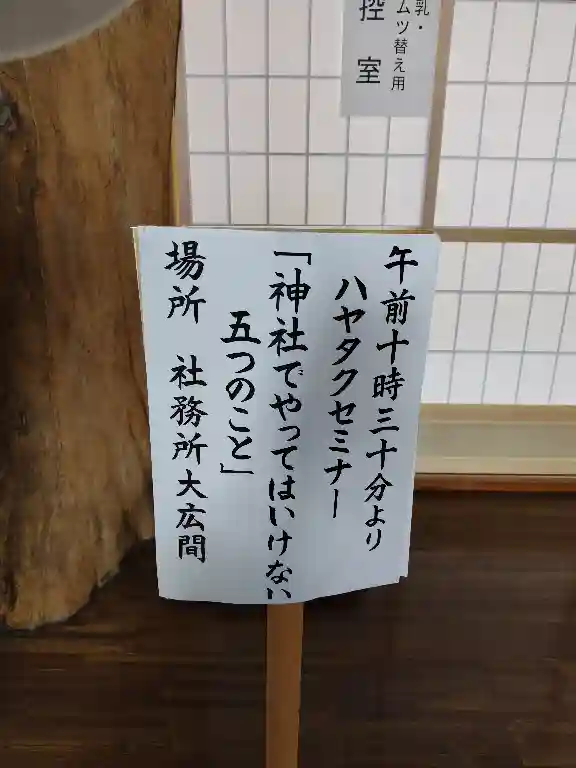 乳・
ムツ替え用
控室
午前十時三十分より
ハヤタクセミナー
「神社でやってはいけない
五つのこと」
場所 社務所大広間